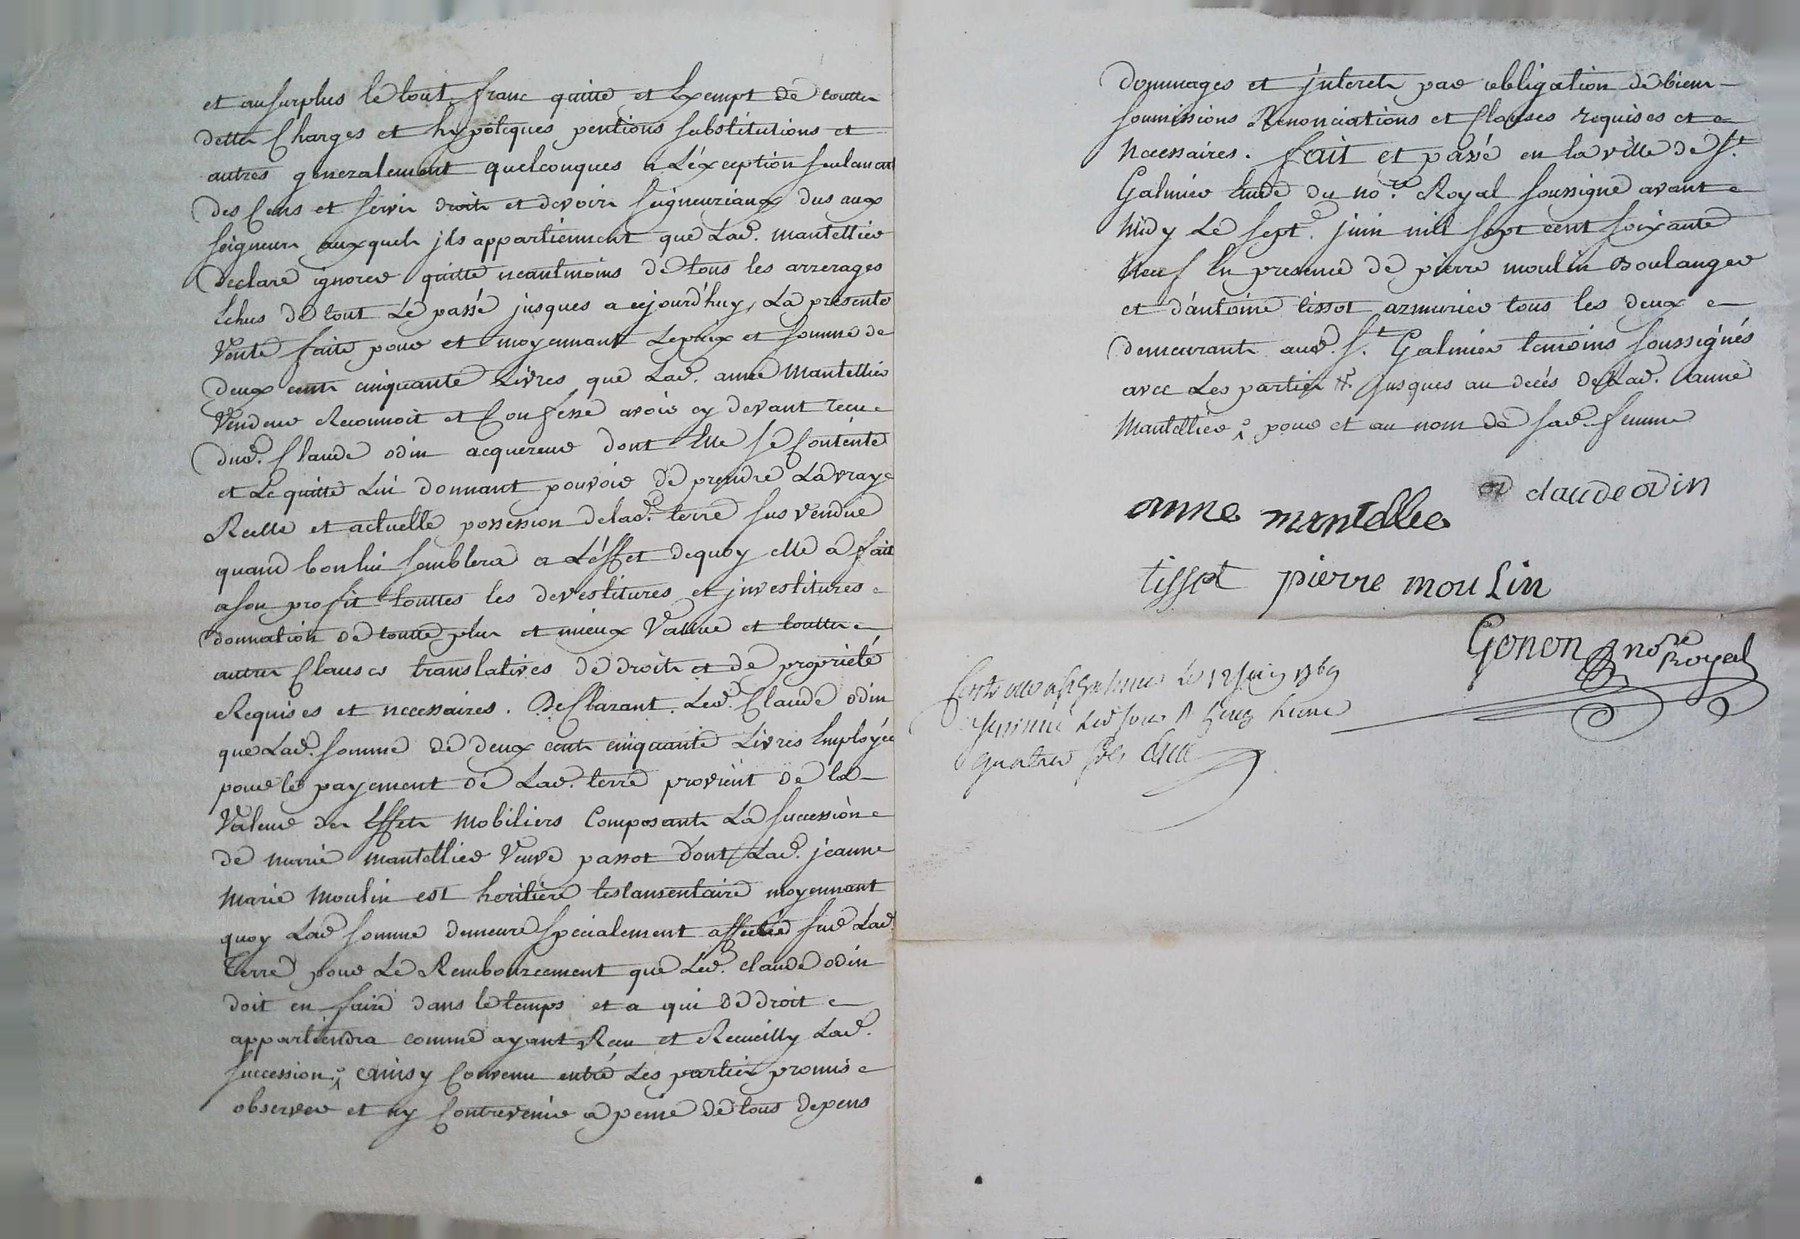 et au surplus le tout franc quitte et Exempt de touttes
dettes Charges et hypoteques pentions substitutions et
autres generalement quelconques a L'éxception seulement
des Cens et servis droits et devoirs seigneuriaux dus aux
seigneurs auxquels jls appartiennent que Lad. mantellier
declare ignorer quitte neantmoins de tous les arrerages
Echus de tout Le passé jusques a aujourd'huy, La presente
Vente faite pour et moyennant Le prix et somme de
deux cents cinquante Livres que Lad. anne Mantellier
Vendeuse Reconnoit et Confesse avoir cy devant recue
dud. Claude odin acquereur dont Elle se Contente
et Le quitte Lui donnant pouvoir de prendre La vraye
Reelle et actuelle possession de lad. terre sus vendue
quand bon lui semblera a L'éffet dequoy elle a fait
a son profit touttes les devestitures et jnvestitures
donnation de toutte plus et mieux Value et touttes
autres Clauses translatives de droits et de propriété
Requises et necessaires. Déclarant Led. Claude odin
que Lad. somme de deux cents cinquante Livres Employée
pour le payement de Lad. terre provient de la
Valeur des Effets Mobiliers Composants La succession
de marie mantellier Veuve passot dont Lad. jeanne
Marie Moulin est heritiere testamentaire moyennant
quoy Lad somme demeure specialement affectée sur Lad.
Terre pour Le Rembourcement que Led. claude odin
doit en faire dans le temps et a qui de droit
appartiendra comme ayant Recu et Recueilly Lad.
succession. ainsy Convenu entre Les parties promis
observer et ny Contrevenir a peine de tous depens
dommages et jnterets par obligation de biens
soumissions Renonciations et Clauses requises et
necessaires. fait et passé en la ville de St
Galmier Etude du nore Royal soussigné avant
Midy Le sept. juin mil sept cent soixante
Neuf En presence de pierre moulin Boulanger
et d'antoine tissot armurier tous les deux
demeurants aud. St Galmier temoins soussignés
avec Les parties jusques au decés de Lad. anne
Mantellier pour et au nom de sad. femme
anne mantellie claude odin
tissot pierre moulin
Gonon nore Royal
Controllé a St Galmier Le 12 juin 1769
Led jour
quatre sols